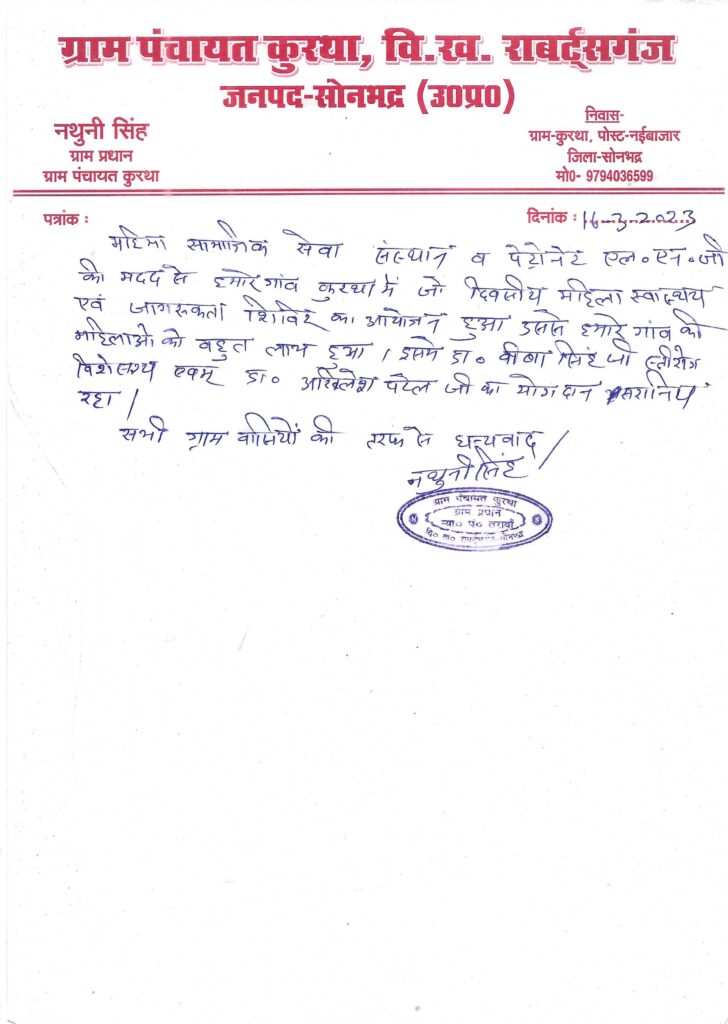 ग्राम पंचायत कुरथा, वि.ख. राबर्ट्सगंज
जनपद-सोनभद्र (उ०प्र०)
नथुनी सिंह
ग्राम प्रधान
ग्राम पंचायत कुरथा
निवास-
ग्राम-कुरथा, पोस्ट-नईबाजार
जिला-सोनभद्र
मो०- 9794036599
पत्रांक :
दिनांक : 16-3-2023
महिमा सामाजिक सेवा संस्थान व पेट्रोनेट एल०एन०जी
की मदद से हमारे गांव कुरथा में जो दिवसीय महिला स्वास्थय
एवं जागरूकता शिविर का आयोजन हुआ इससे हमारे गांव की
महिलाओ को बहुत लाभ हुआ। इसमे डा० वीणा सिंह जी स्त्रीरोग
विशेसग्य एवम् डा० अखिलेश पटेल जी का योगदान
रहा।
सभी ग्राम वासियों की तरफ से धन्यवाद।
नथुनी सिंह
ग्राम पंचायत कुरथा
ग्राम प्रधान
न्या० पं० तरावाँ